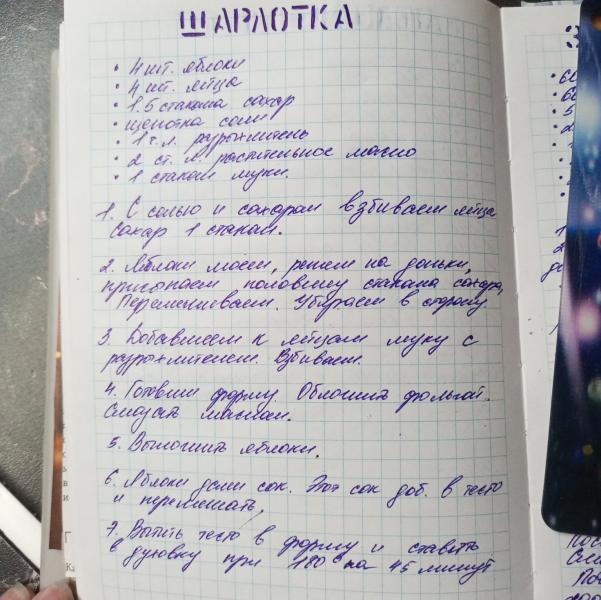 ШАРЛОТКА
• 4 шт. яблоки
• 4 шт. яйца
• 1.5 стакана сахар
• щепотка соли
• 1 ч.л. разрыхлитель
• 2 ст. л растительное масло
• 1 стакан муки.
1. С солью и сахаром взбиваем яйца
сахар 1 стакан.
2. Яблоки моем, режем на дольки,
присыпаем половину стакана сахара,
Перемешиваем. Убираем в сторону
3. Добавляем к яйцам муку с
разрыхлителем. Взбиваем.
4. Готовим форму Обложить фольгой.
Смазать маслом.
5. Выложить яблоки.
6. Яблоки дали сок. Этот сок доб. в тесто
и перемешать.
7. Вылить тесто в форму и ставить
в духовку при 180° на 45 минут